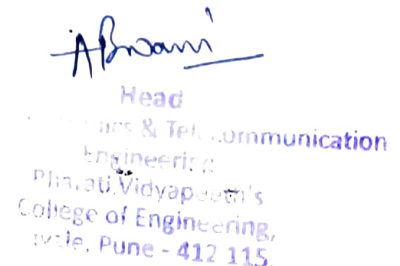 Head
& Telecommunication
Engineering
Vidyapeeth's
College of Engineering,
Pune - 412 115.